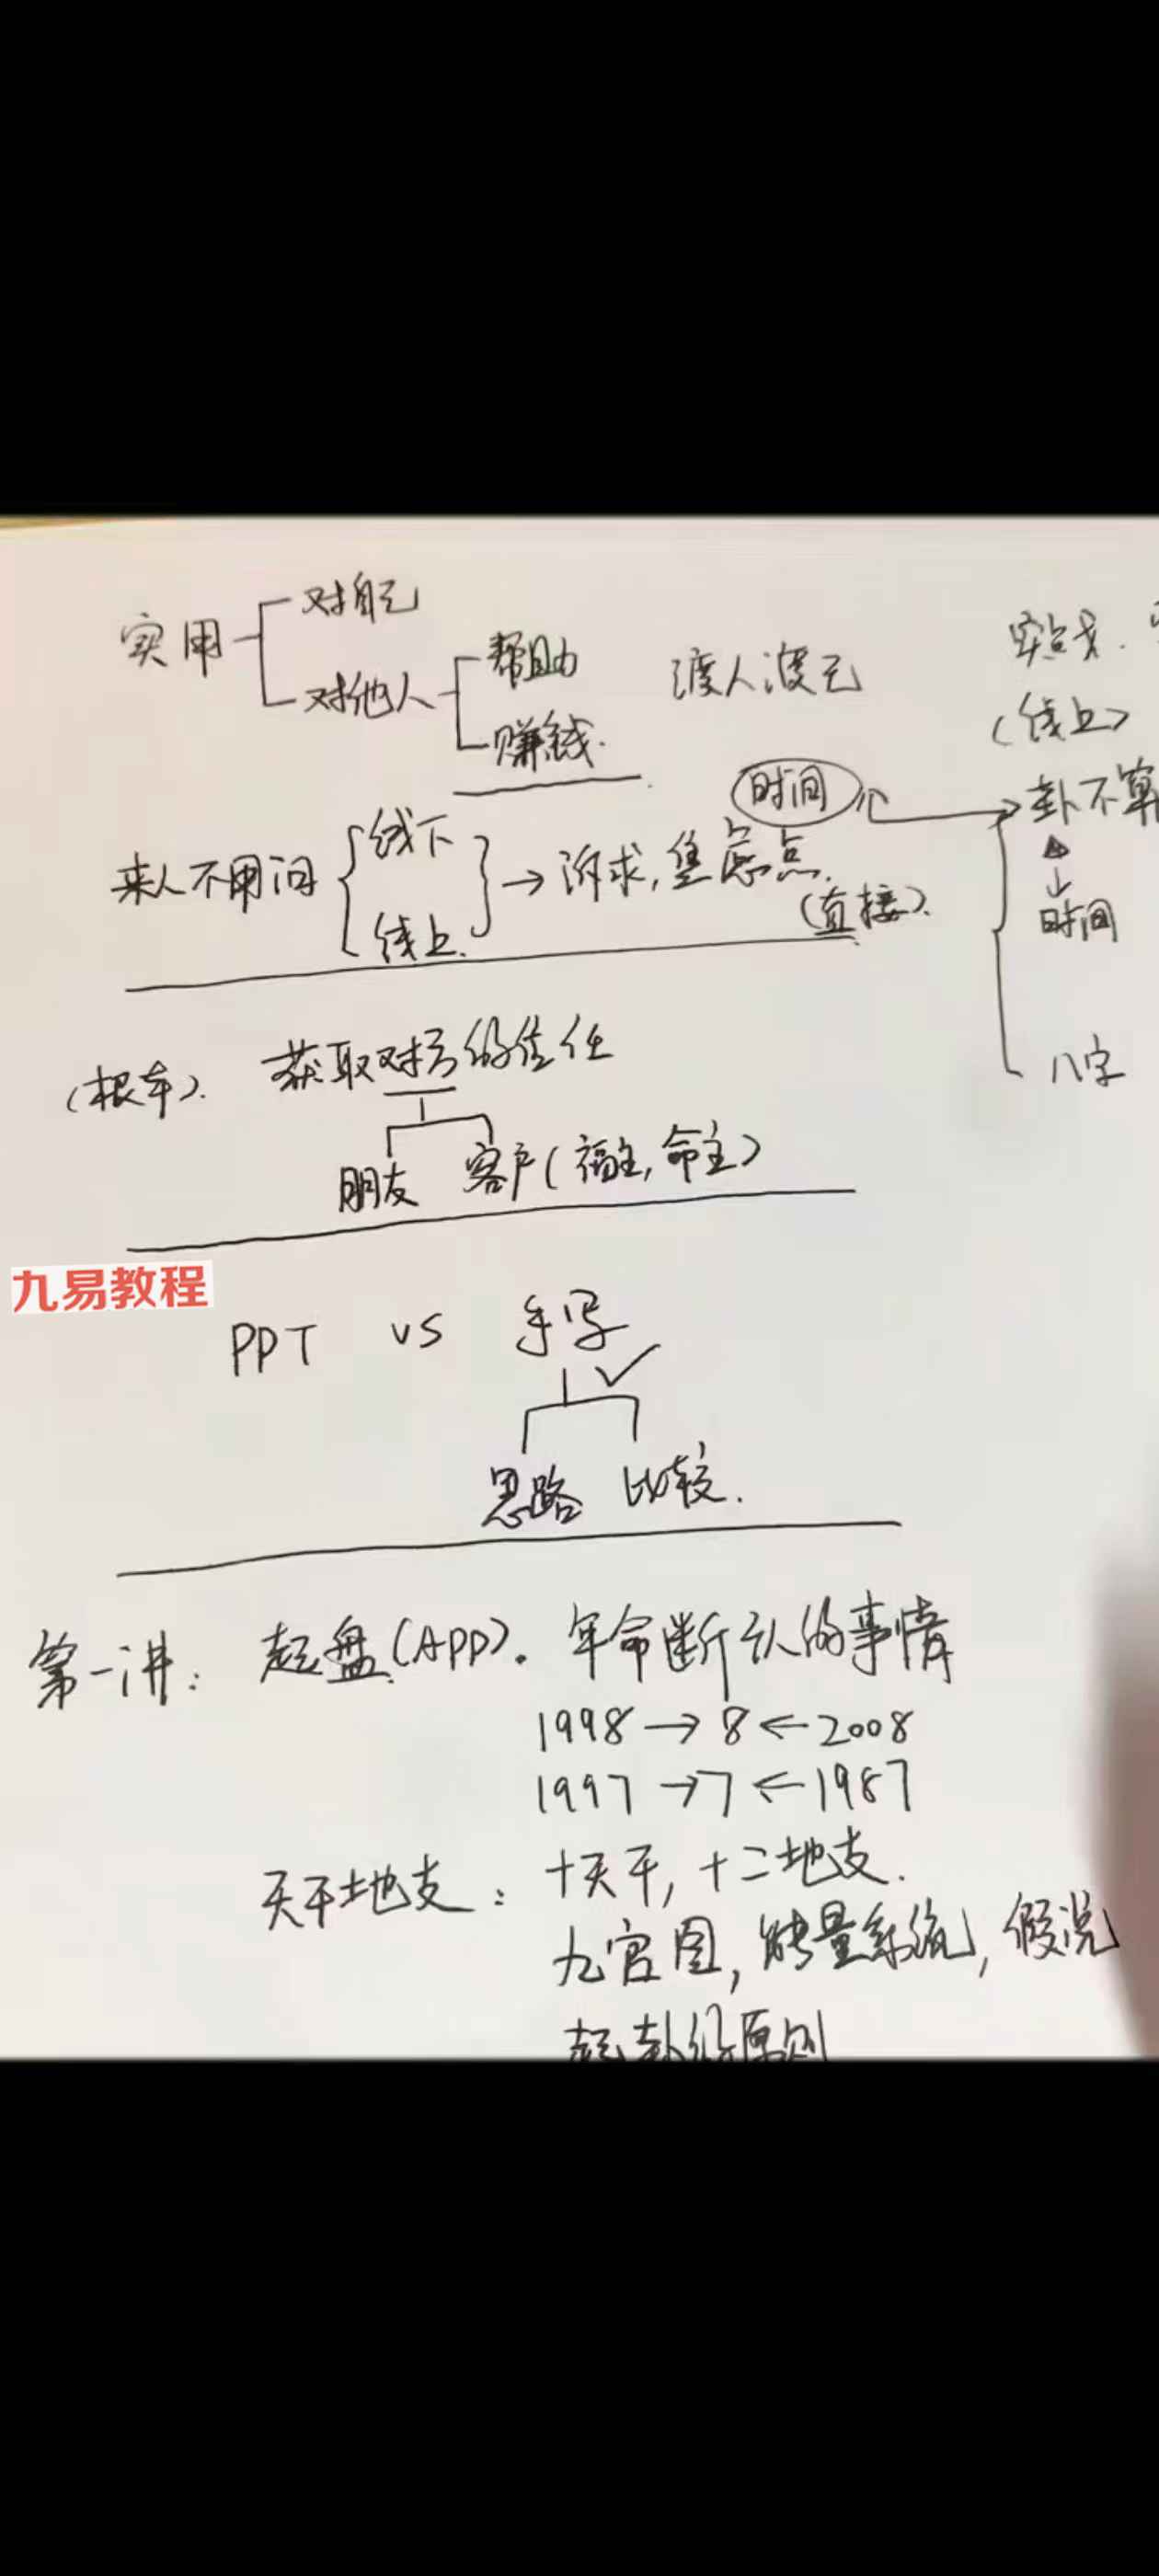 实用
对自己
对他人
帮助
赚钱.
渡人渡己
实战.
(线上)
时间
卦不算
时间
八字
来人不用问
线下
线上.
→ 诉求, 焦虑点.
(直接).
(根本). 获取对方的信任
朋友 客户(福主, 命主)
九易教程
PPT vs 手写
思路 比较.
第一讲: 起盘(APP). 年命断 的事情
1998 → 8 ← 2008
1997 → 7 ← 1987
天干地支: 十天干, 十二地支.
九宫图, 能量系统, 假说
起卦的原则